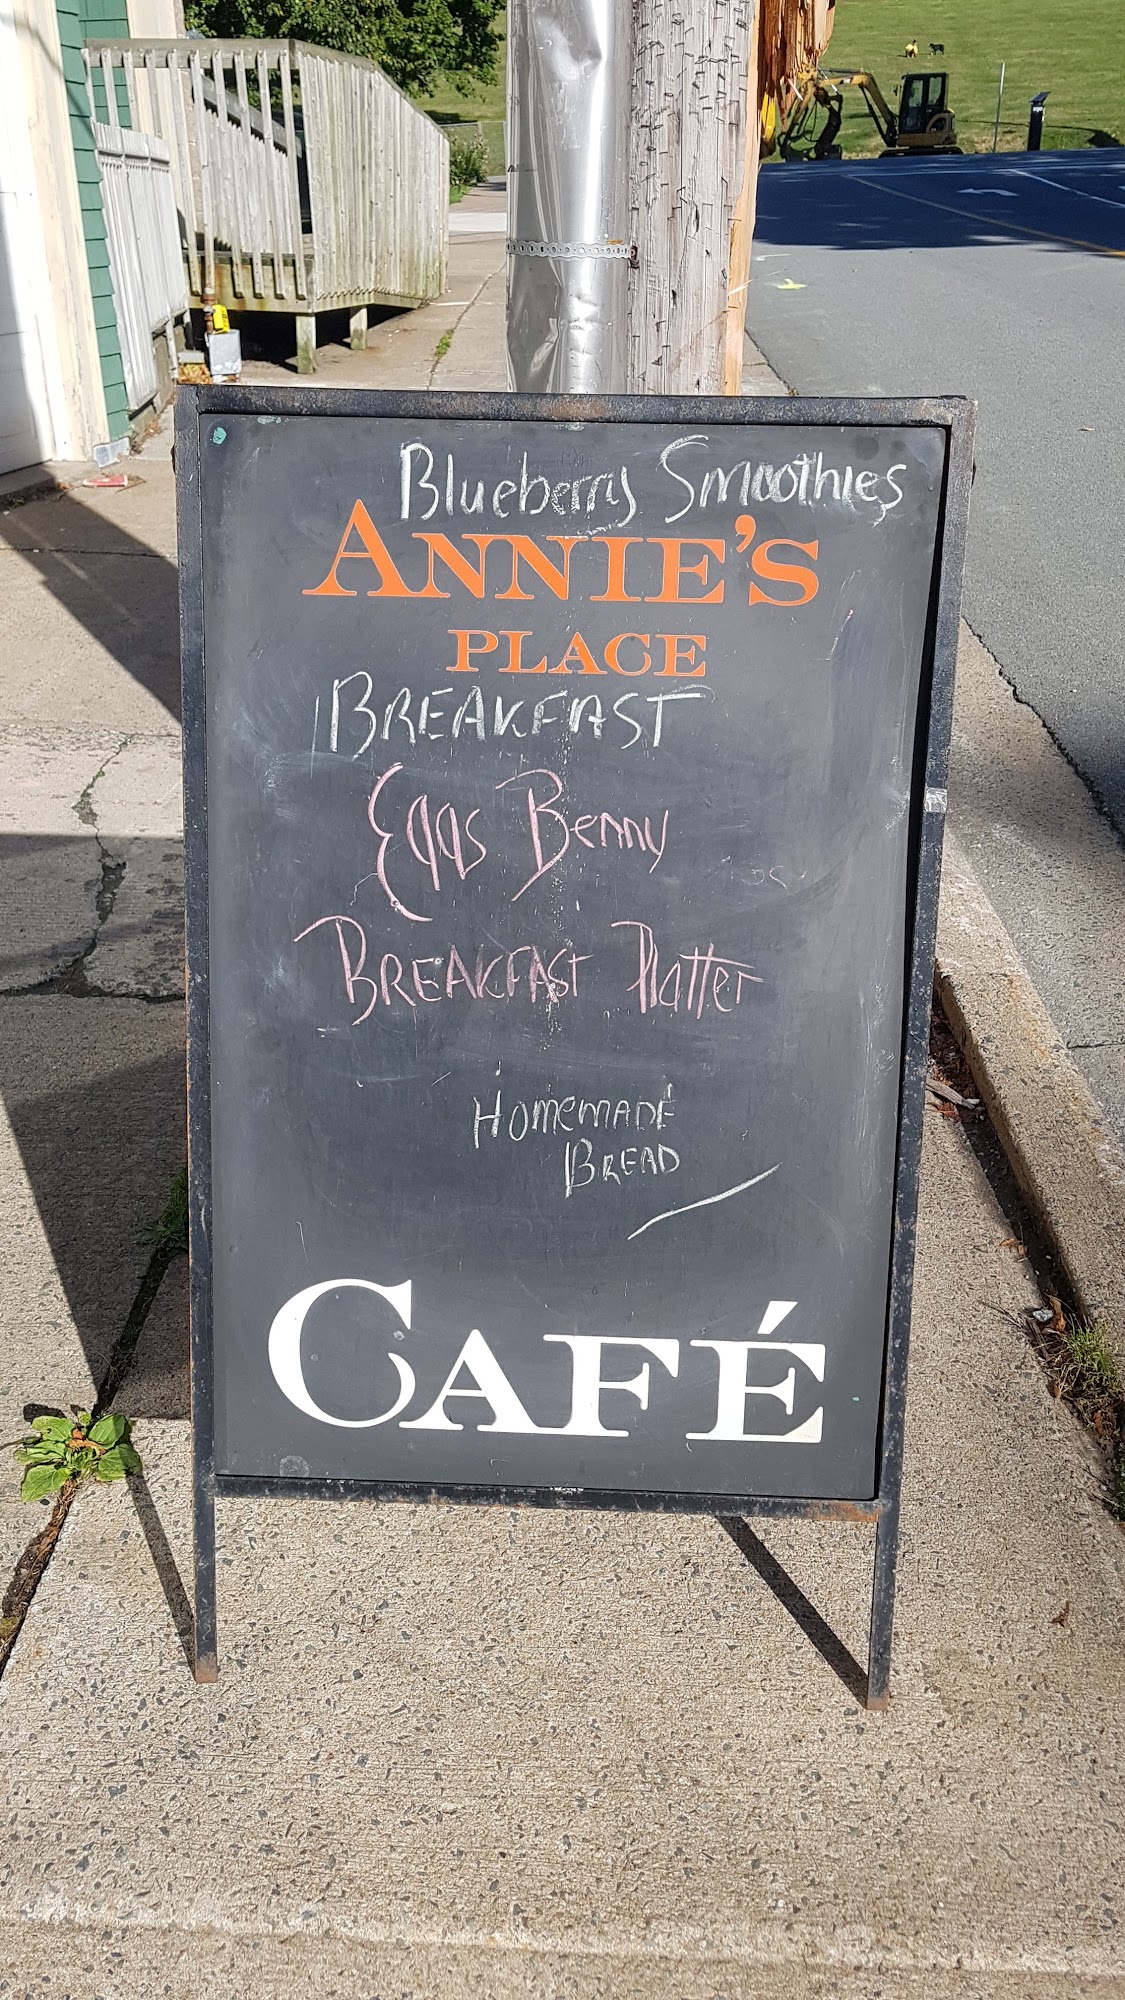 Blueberry Smoothies
ANNIE'S
PLACE
BREAKFAST
Eggs Benny
BREAKFAST Platter
HOMEMADE
BREAD
CAFÉ